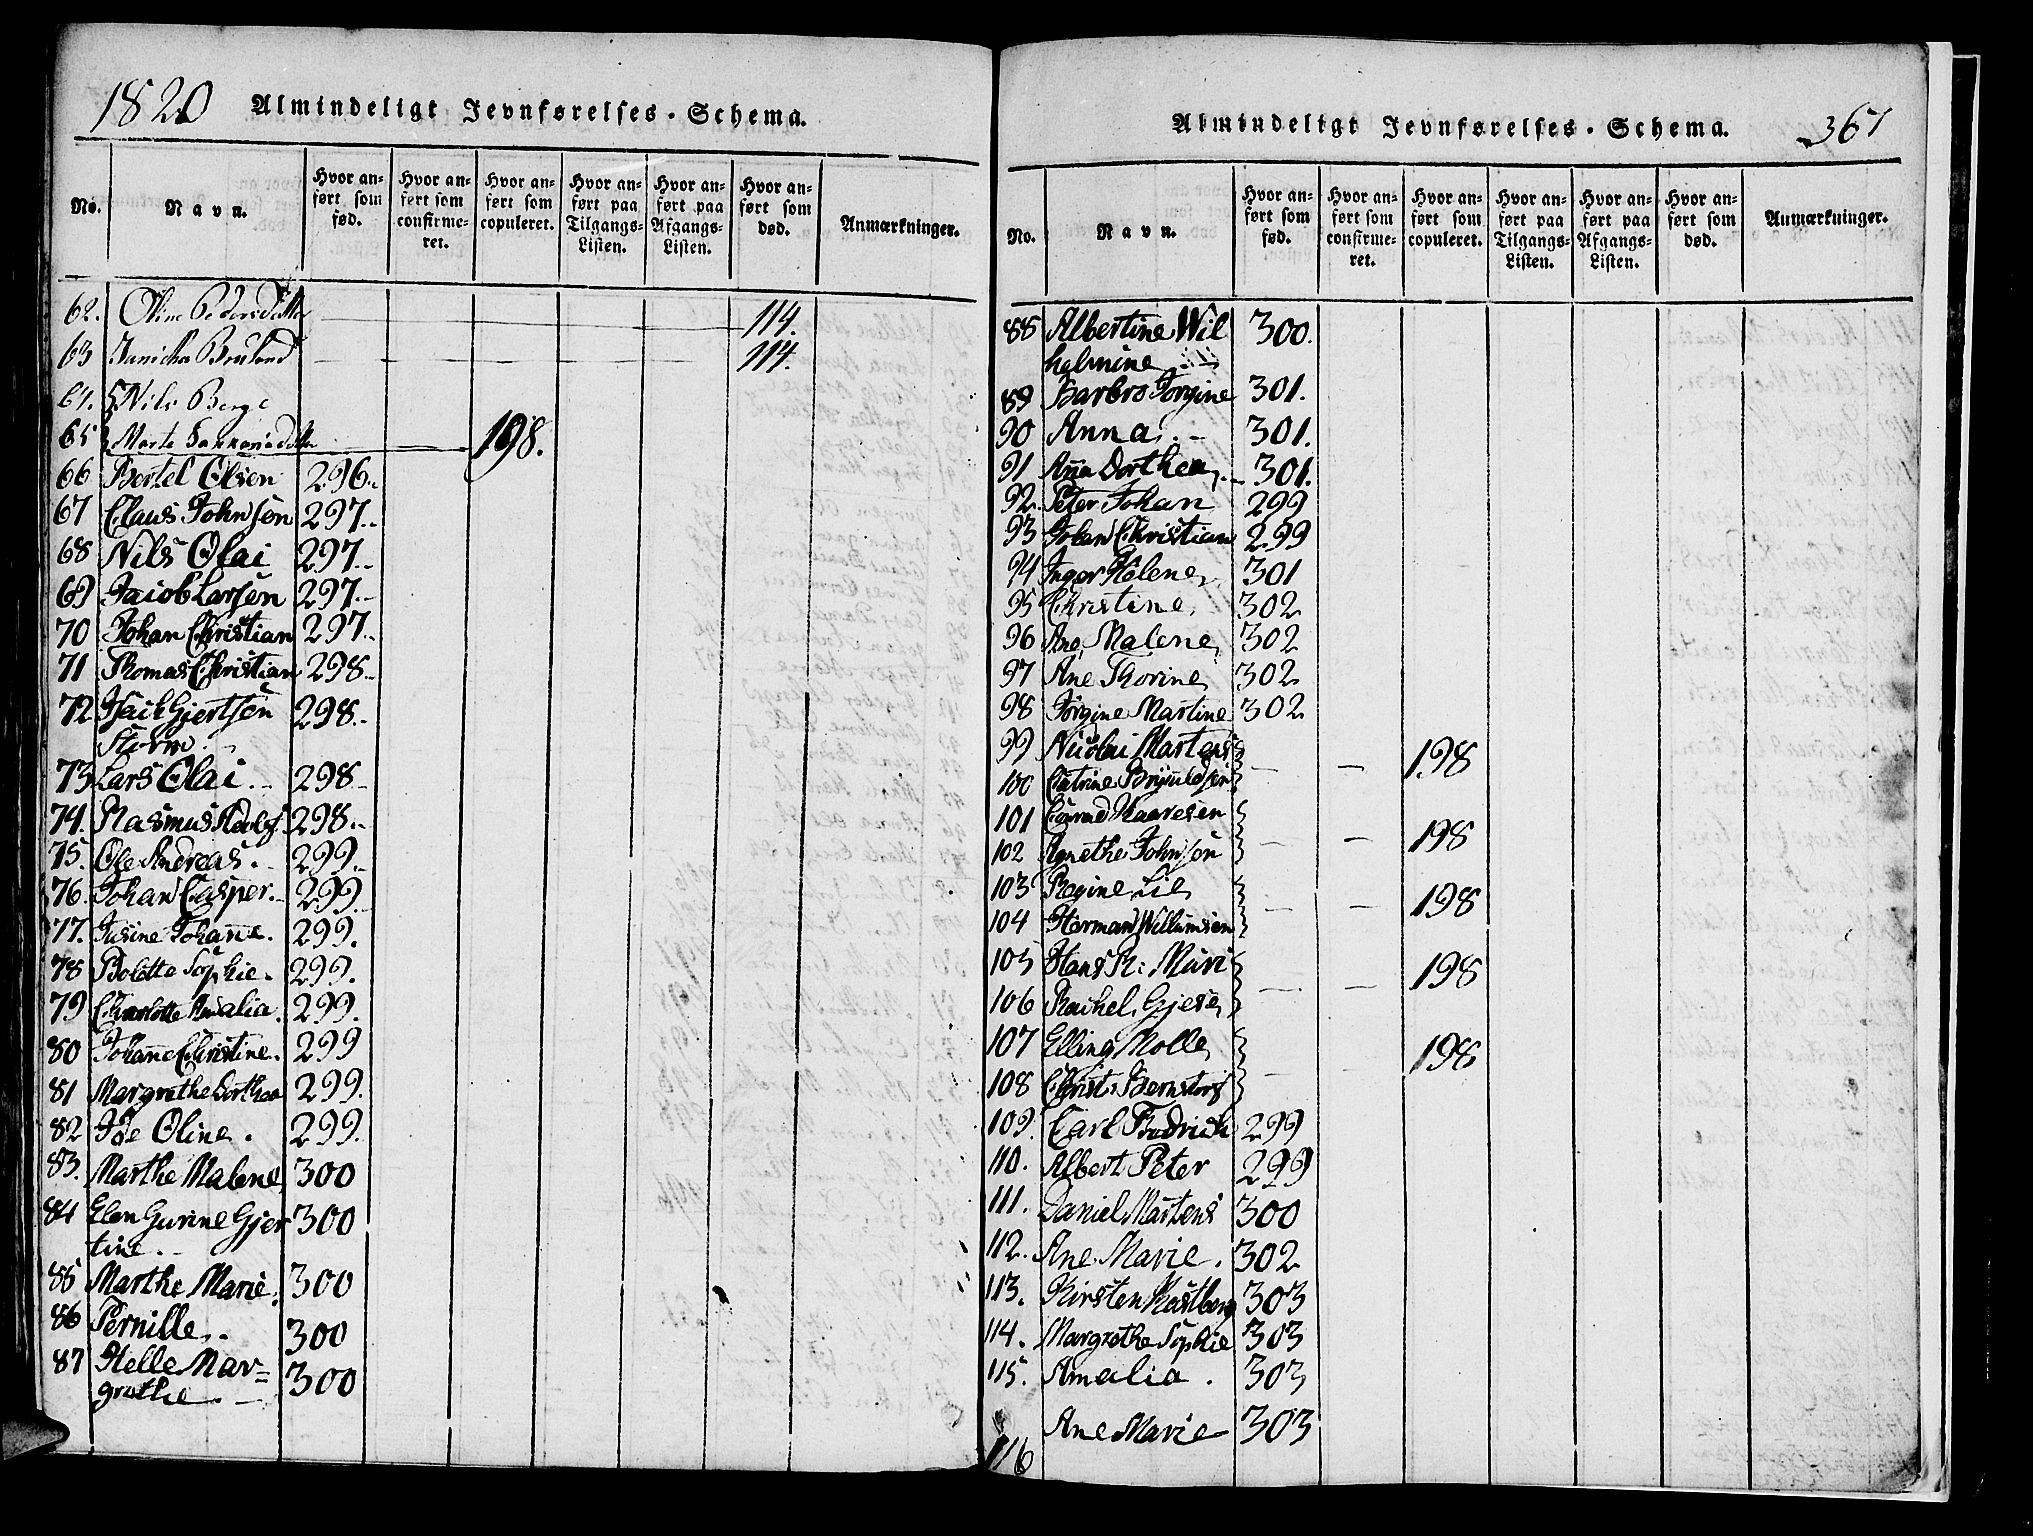 1820 Almindeligt Jevnførelses-Schema.
No. Navn. Hvor an-ført som fød. Hvor an-ført som confirme-ret. Hvor an-ført som copuleret. Hvor an-ført paa Tilgangs-Listen. Hvor an-ført paa Afgangs-Listen. Hvor an-ført som død. Anmærkninger.
62. Oline Pedersdatter 114.
63 114.
64. Nils Berge
65 Marte 198.
66 Bertel Olsen 296.
67 Claus Johnsen 297.
68 Nils Olai 297.
69 Jacob Larsen 297.
70 Johan Christian 297.
71 Thomas Christian 298.
72 Isach Gjertsen 298.
Storm.
73 Lars Olai. 298
74. Rasmus Adolf. 298.
75. Ole Andreas. 299.
76. Johan Casper. 299.
77. Jusine Johanne. 299.
78 Bolette Sophie. 299.
79 Charlotte Amalia. 299.
80 Johanne Christine. 299
81 Margrethe Dorthea 299.
82 Ide Oline. 299.
83. Marthe Malene 300
84 Elen Gurine Gjer 300
tine.
85 Marthe Marie. 300
86 Pernille. 300
87 Helle Mar= 300
grethe.
Almindeligt Jevnførelses-Schema. 367
No. Navn. Hvor an-ført som fød. Hvor an-ført som confirme-ret. Hvor an-ført som copuleret. Hvor an-ført paa Tilgangs-Listen. Hvor an-ført paa Afgangs-Listen. Hvor an-ført som død. Anmærkninger.
88 Albertine Wil 300.
helmine
89 Barbro Torgine 301.
90 Anna. 301.
91 Ana Dorthea. 301.
92. Peter Johan 299
93 Johan Christian 299
94 Inger Helene 301
95 Christine 302
96 Ane Malene 302
97 Ane Thorine 302
98 Jørgine Martine 302
99 Nicolai Martens 198
100 Catrine
101 198
102 Agnethe Johnsen
103 Regine Lie 198
104 Herman Willumsen
105 Hans 198
106 Rachel Gjese
107 Elling Molle 198
108 Christ: Bernstorf
109. Carl Fredrich 299
110. Albert Peter 299
111. Daniel Martens 300
112. Ane Marie. 302
113. Kirsten 303
114. Margrethe Sophie 303
115. Amalia. 303
116 Ane Marie 303